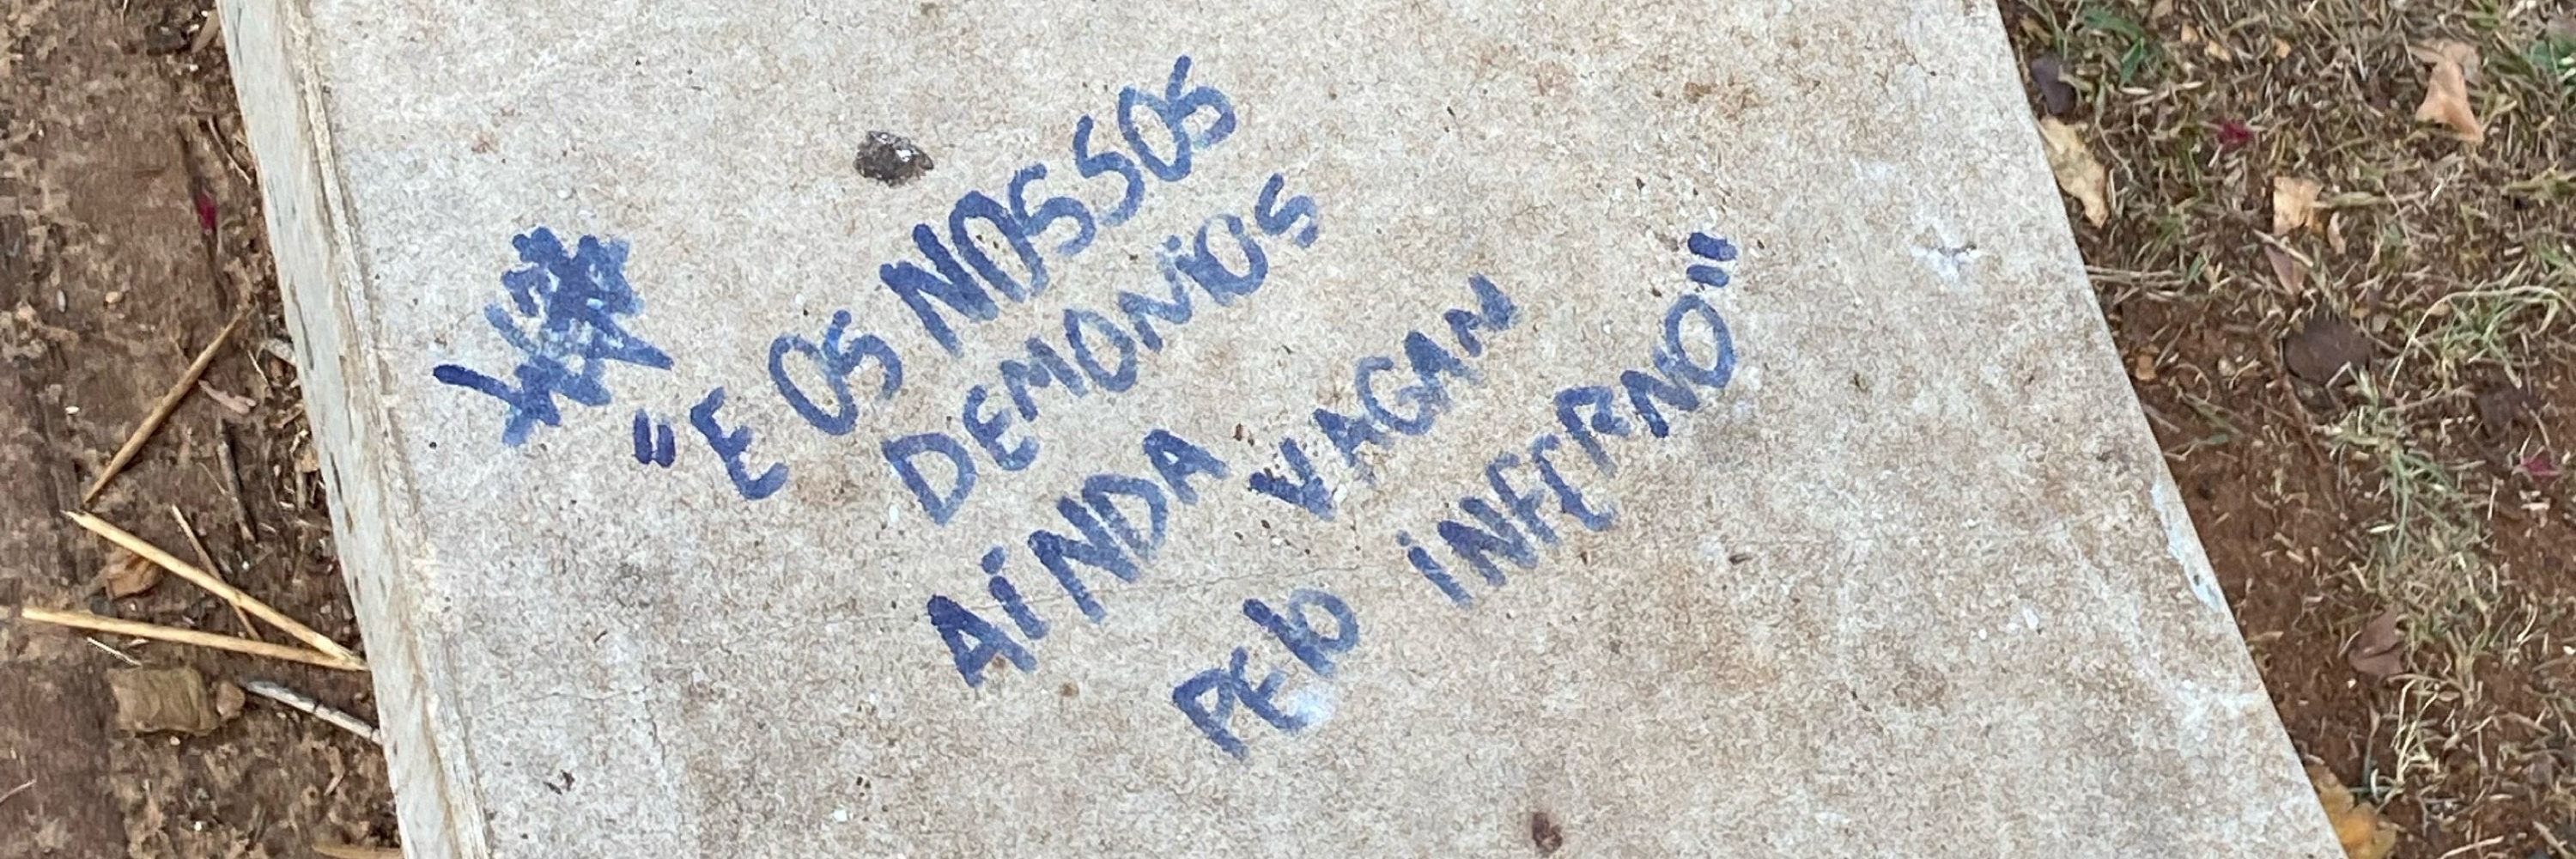 "E OS NOSSOS
DEMONIOS
AINDA VAGAN
PElO INFERNO"